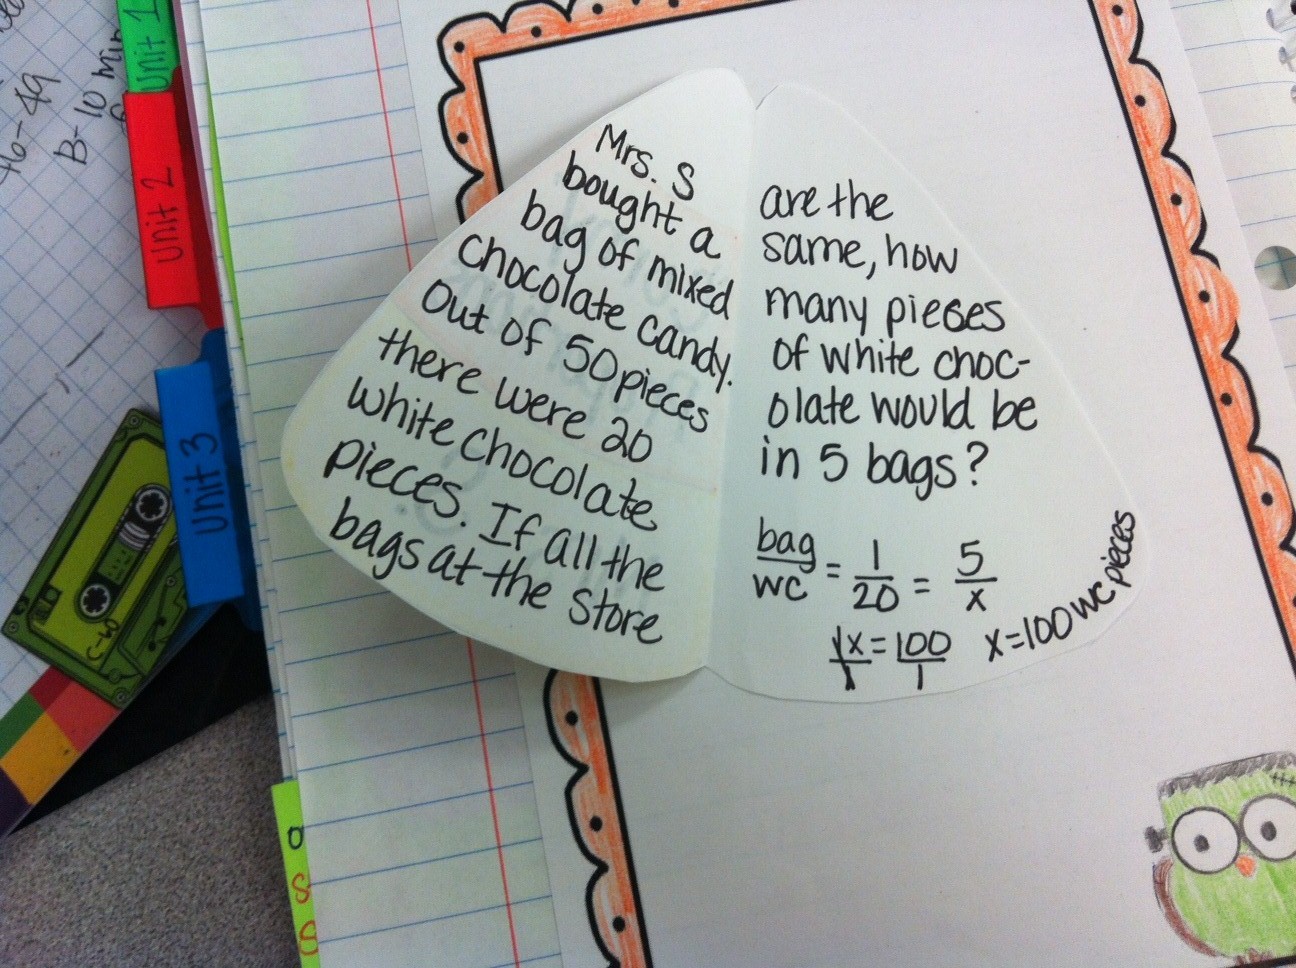 46-49
B-10 min
Unit 1
Unit 2
Unit 3
C-60
Mrs. S
bought a
bag of mixed
chocolate candy.
Out of 50 pieces
there were 20
white chocolate
pieces. If all the
bags at the store
are the
same, how
many pieces
of white choc-
olate would be
in 5 bags?
bag/wc = 1/20 = 5/x
1x/1 = 100/1 x=100 wc pieces